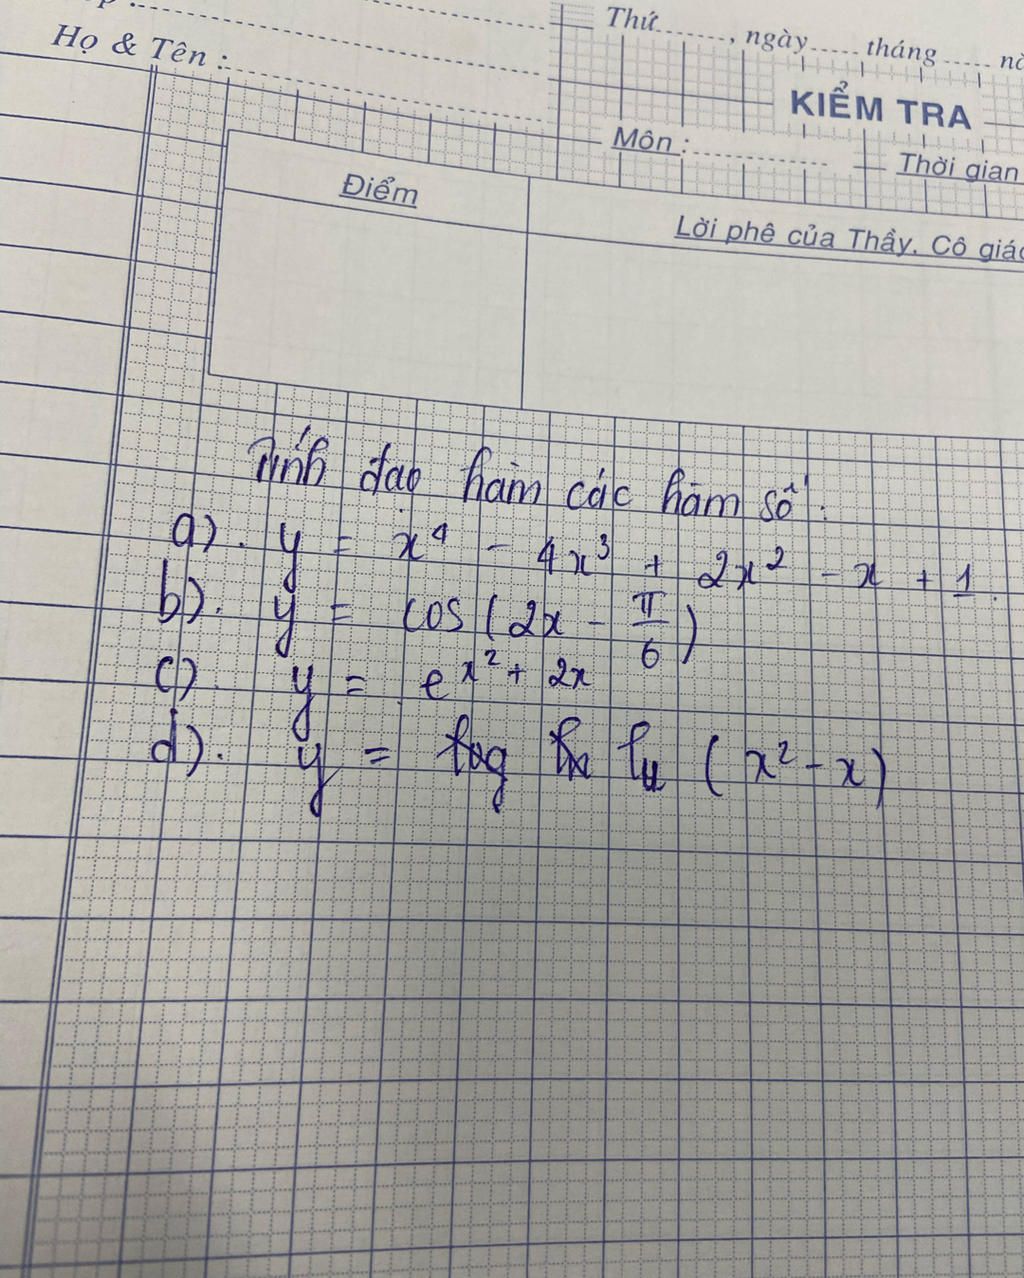 Họ & Tên :
Thứ......., ngày..... tháng.....
KIỂM TRA
Môn :
Thời gian
Điểm
Lời phê của Thầy. Cô giáo
Tính đạo hàm các hàm số :
a). y = x⁴ - 4x³ + 2x² - x + 1.
b). y = cos (2x - π/6)
c). y = e^x² + 2x
d). y = ln (x² - x)